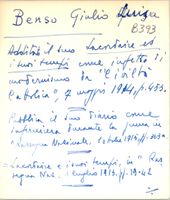 Benso Giulio
B393
Additata il suo Lacordaire ed
i suoi tempi come infetto di
modernismo da "Civiltà
Cattolica", 7 maggio 1914, p. 453.
Pubblica il suo diario come
infermiera durante la guerra in
"Rassegna Nazionale,
- Lacordaire e i suoi tempi, in "Ras-
segna Naz. 1 luglio 1913, pp. 19-42